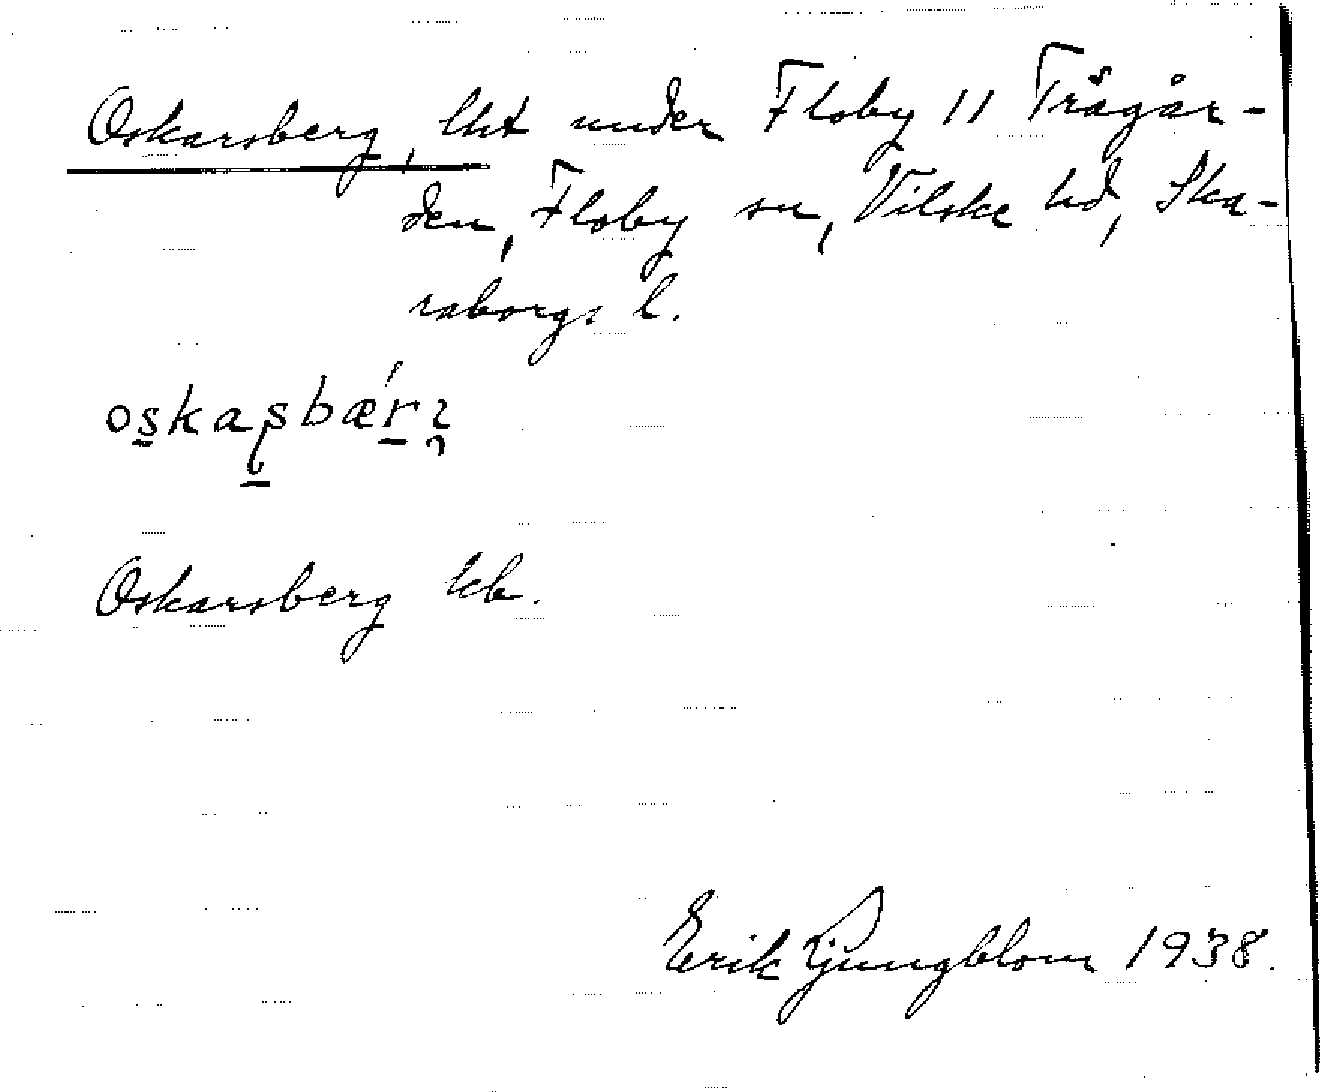 Oskarsberg, lht under Floby 11 Trågår-
den, Floby sn, Vilske hd, Ska-
raborgs l.
Oskarsberg kb.
Erik Ljungblom 1938.